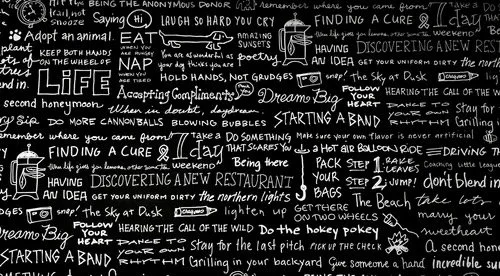 Hit the BEING THE ANONYMOUS DONOR
remember where you came from
Fail not
Snooze
Saying Hi
LAUGH SO HARD YOU CRY
FINDING A CURE
1 day
weekend
Adopt an animal
plant
lots of
trees
EAT
WHEN YOU ARE HUNGRY
NAP
WHEN YOU ARE TIRED
AMAZING
SUNSETS
HAVING
AN INSTANT
DISCOVERING A NEW REST
KEEP BOTH HANDS
ON THE WHEEL OF
LiFE
You are as wonderful as
your dog thinks you are
poetry
GET YOUR UNIFORM DIRTY
the north
HOLD HANDS, NOT GRUDGES
snap!
The Sky at Dusk
lighten
second honeymoon
Accepting Compliments
Dream Big
FOLLOW
YOUR
HEART
HEARING THE CALL OF THE WILD
When in doubt, daydream
DANCE TO
YOUR OWN
RHYTHM
Stay for
Grilling
sip
DO MORE CANNONBALLS
BLOWING BUBBLES
STARTING A BAND
remember where you came from
Take a
day
weekend
DO SOMETHING
THAT SCARES YOU
Make sure your own flavor is never artificial
FINDING A CURE
a Hot AIR BALLOON RIDE
DRIVING
When life gives you lemons, other
Being there
PACK
YOUR
BAGS
STEP 1: RAKE
LEAVES
STEP 2: JUMP!
Coaching little league
don't blend in
HAVING
AN INSTANT
DISCOVERING A NEW RESTAURANT
GET YOUR UNIFORM DIRTY
the northern lights
GET THERE
ON TWO WHEELS
The Beach
take lots
marry your
sweetheart
snap!
The Sky at Dusk
lighten up
FOLLOW
YOUR
HEART
HEARING THE CALL OF THE WILD
Do the hokey pokey
Dream Big
DANCE TO
YOUR OWN
RHYTHM
Stay for the last pitch
PICK UP THE CHECK
A second hone
STARTING A BAND
Grilling in your backyard
Give someone a hand
incredible, su